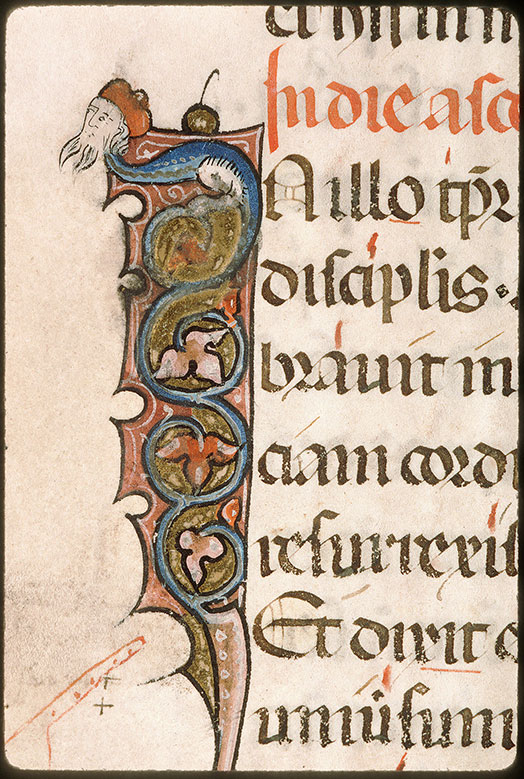 In die asc
N illo tp̄r
disciplis.
brauit in
ciam cordi
resurrexis
Et dixit e
umūsum